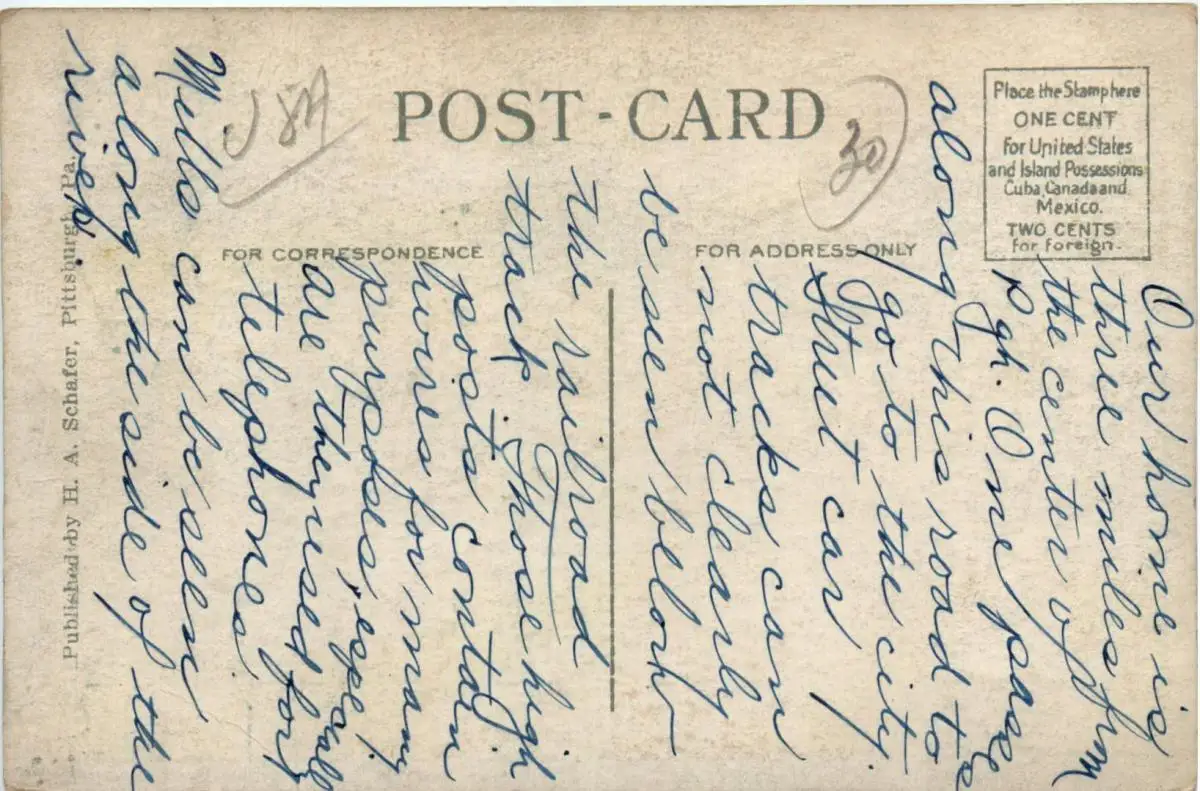 POST-CARD
Place the Stamp here
ONE CENT
For United States
and Island Possessions
Cuba, Canada and
Mexico.
TWO CENTS
for foreign.
FOR CORRESPONDENCE
FOR ADDRESS ONLY
30
Our home is
three miles from
the center of
Pgh. One passes
along this road to
go to the city.
Street car
tracks can
not clearly
be seen below
the railroad
track. Those high
posts contain
wires for many
purposes, especially
are they used for
telephones.
Mills can be seen
along the side of the
river.
Published by H. A. Schafer, Pittsburgh, Pa.